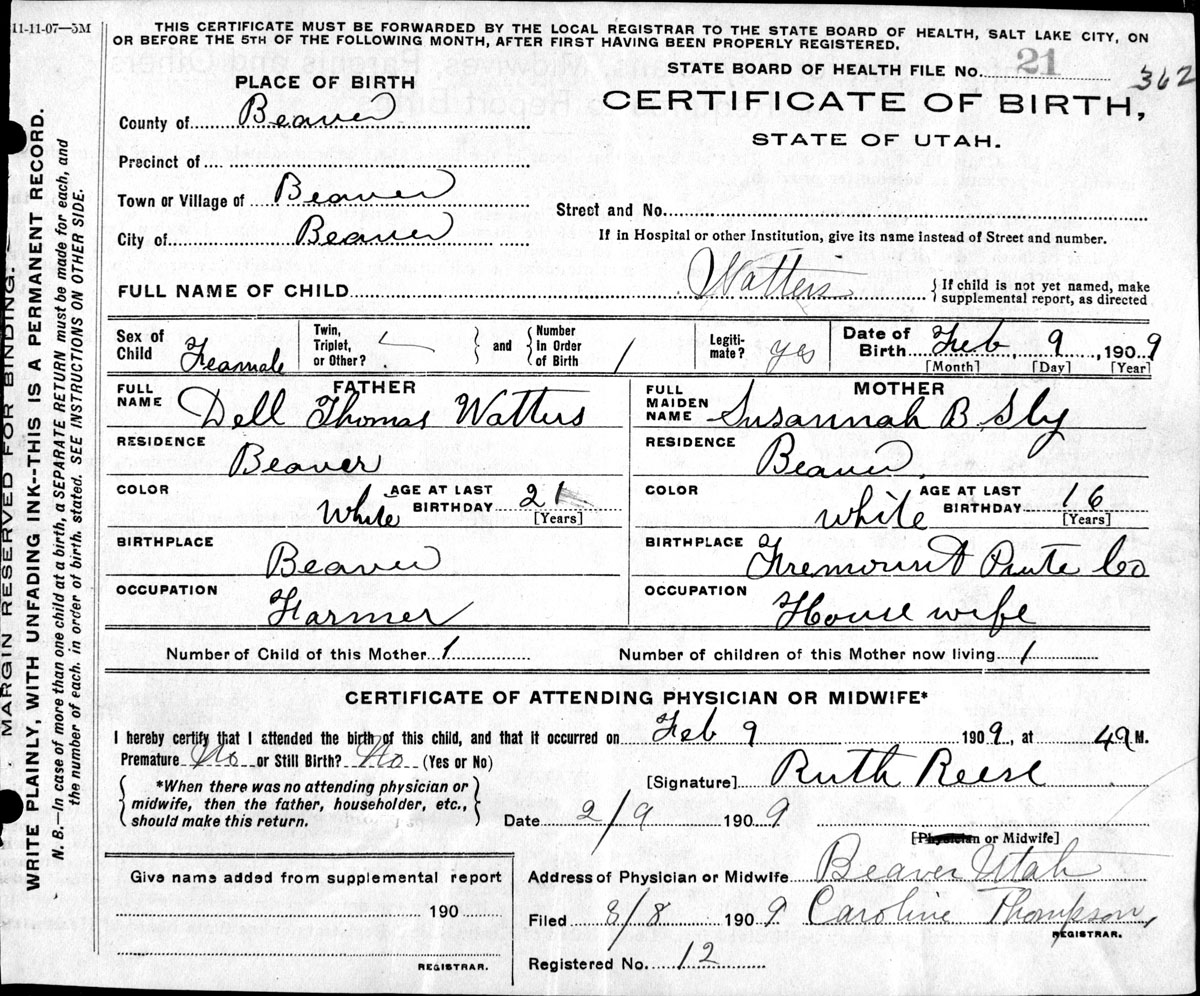 11-11-07—5M
THIS CERTIFICATE MUST BE FORWARDED BY THE LOCAL REGISTRAR TO THE STATE BOARD OF HEALTH, SALT LAKE CITY, ON
OR BEFORE THE 5TH OF THE FOLLOWING MONTH, AFTER FIRST HAVING BEEN PROPERLY REGISTERED.
STATE BOARD OF HEALTH FILE No. 21
362
PLACE OF BIRTH
CERTIFICATE OF BIRTH,
STATE OF UTAH.
County of Beaver
Precinct of
Town or Village of Beaver
City of Beaver
Street and No.
If in Hospital or other Institution, give its name instead of Street and number.
FULL NAME OF CHILD Watters
If child is not yet named, make
supplemental report, as directed
Sex of Child Feamale
Twin, Triplet, or Other?
and Number In Order of Birth 1
Legiti-mate? yes
Date of Birth Feb, 9, 1909
[Month] [Day] [Year]
FATHER
FULL NAME Dell Thomas Watters
RESIDENCE Beaver
COLOR White AGE AT LAST BIRTHDAY 21 [Years]
BIRTHPLACE Beaver
OCCUPATION Farmer
MOTHER
FULL MAIDEN NAME Susannah B. Sly
RESIDENCE Beaver
COLOR white AGE AT LAST BIRTHDAY 16 [Years]
BIRTHPLACE Fremount Piute Co
OCCUPATION House wife
Number of Child of this Mother 1
Number of children of this Mother now living 1
CERTIFICATE OF ATTENDING PHYSICIAN OR MIDWIFE*
I hereby certify that I attended the birth of this child, and that it occurred on Feb 9 1909, at M.
Premature No or Still Birth? No (Yes or No)
*When there was no attending physician or
midwife, then the father, householder, etc.,
should make this return.
[Signature] Ruth Reese
Date 2/9 1909
[Physician or Midwife]
Give name added from supplemental report
190
REGISTRAR.
Address of Physician or Midwife Beaver Utah
Filed 3/8 1909 Caroline Thompson,
REGISTRAR.
Registered No. 12
MARGIN RESERVED FOR BINDING.
WRITE PLAINLY, WITH UNFADING INK--THIS IS A PERMANENT RECORD.
N. B.—In case of more than one child at a birth, a SEPARATE RETURN must be made for each, and
the number of each, in order of birth, stated. SEE INSTRUCTIONS ON OTHER SIDE.